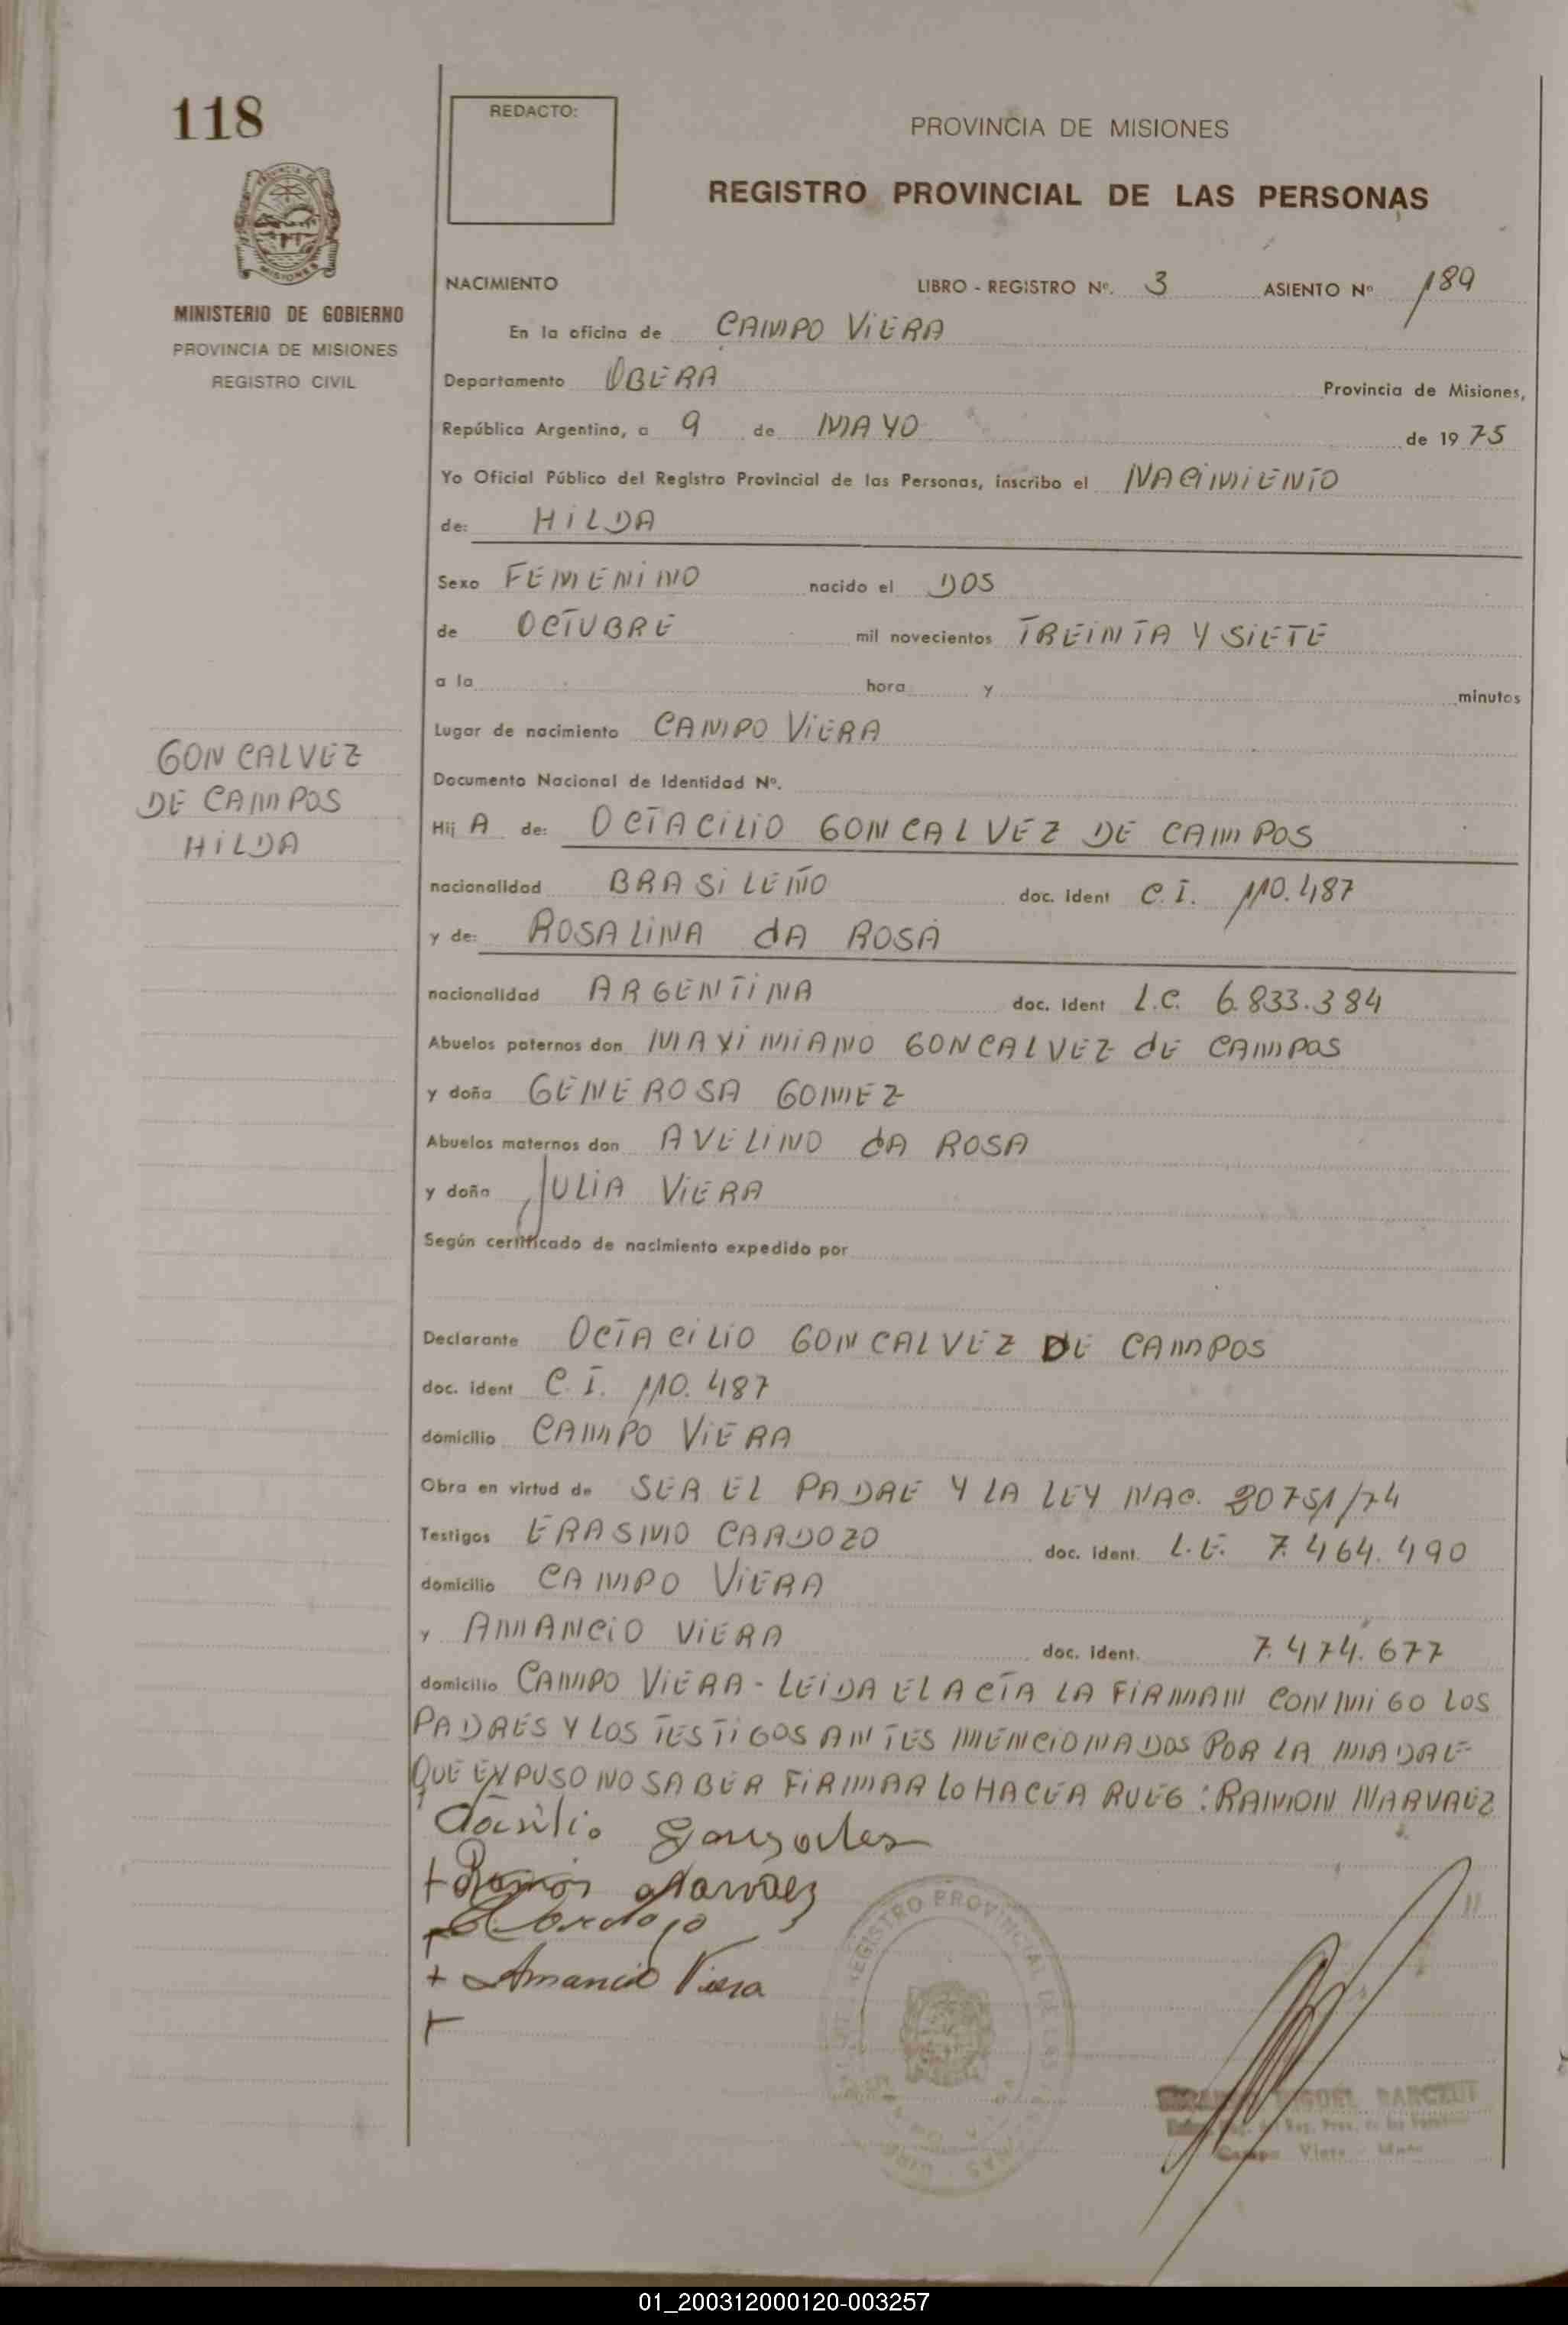 118
REDACTO:
PROVINCIA DE MISIONES
REGISTRO PROVINCIAL DE LAS PERSONAS
MINISTERIO DE GOBIERNO
PROVINCIA DE MISIONES
REGISTRO CIVIL
NACIMIENTO LIBRO - REGISTRO Nº. 3 ASIENTO Nº 189
En la oficina de CAMPO VIERA
Departamento OBERA Provincia de Misiones,
República Argentina, a 9 de MAYO de 1975
Yo Oficial Público del Registro Provincial de las Personas, inscribo el NACIMIENTO
de: HILDA
Sexo FEMENINO nacido el DOS
de OCTUBRE mil novecientos TREINTA Y SIETE
a la hora y minutos
Lugar de nacimiento CAMPO VIERA
GONCALVEZ
DE CAMPOS
HILDA
Documento Nacional de Identidad Nº.
Hij A de: OCTACILIO GONCALVEZ DE CAMPOS
nacionalidad BRASILEÑO doc. Ident C.I. 110.487
y de: ROSALINA dA ROSA
nacionalidad ARGENTINA doc. Ident L.C. 6.833.384
Abuelos paternos don MAXIMIANO GONCALVEZ dE CAMPOS
y doña GENEROSA GOMEZ
Abuelos maternos don AVELINO dA ROSA
y doña JULIA VIERA
Según certificado de nacimiento expedido por
Declarante OCTACILIO GONCALVEZ DE CAMPOS
doc. ident C.I. 110.487
domicilio CAMPO VIERA
Obra en virtud de SER EL PADRE Y LA LEY NAC. 20751/74
Testigos ERASMO CARDOZO doc. ident. L.E. 7.464.490
domicilio CAMPO VIERA
y AMANCIO VIERA doc. ident. 7.474.677
domicilio CAMPO VIERA - LEIDA EL ACTA LA FIRMAN CONMIGO LOS
PADRES Y LOS TESTIGOS ANTES MENCIONADOS POR LA MADRE
QUE EXPUSO NO SABER FIRMAR LO HACE A RUEG : RAMON NARVAEZ
+ Ramon Narvaez
+ Amancio Viera
+
REGISTRO PROVINCIAL DE LAS
Campo Viera
01_200312000120-003257